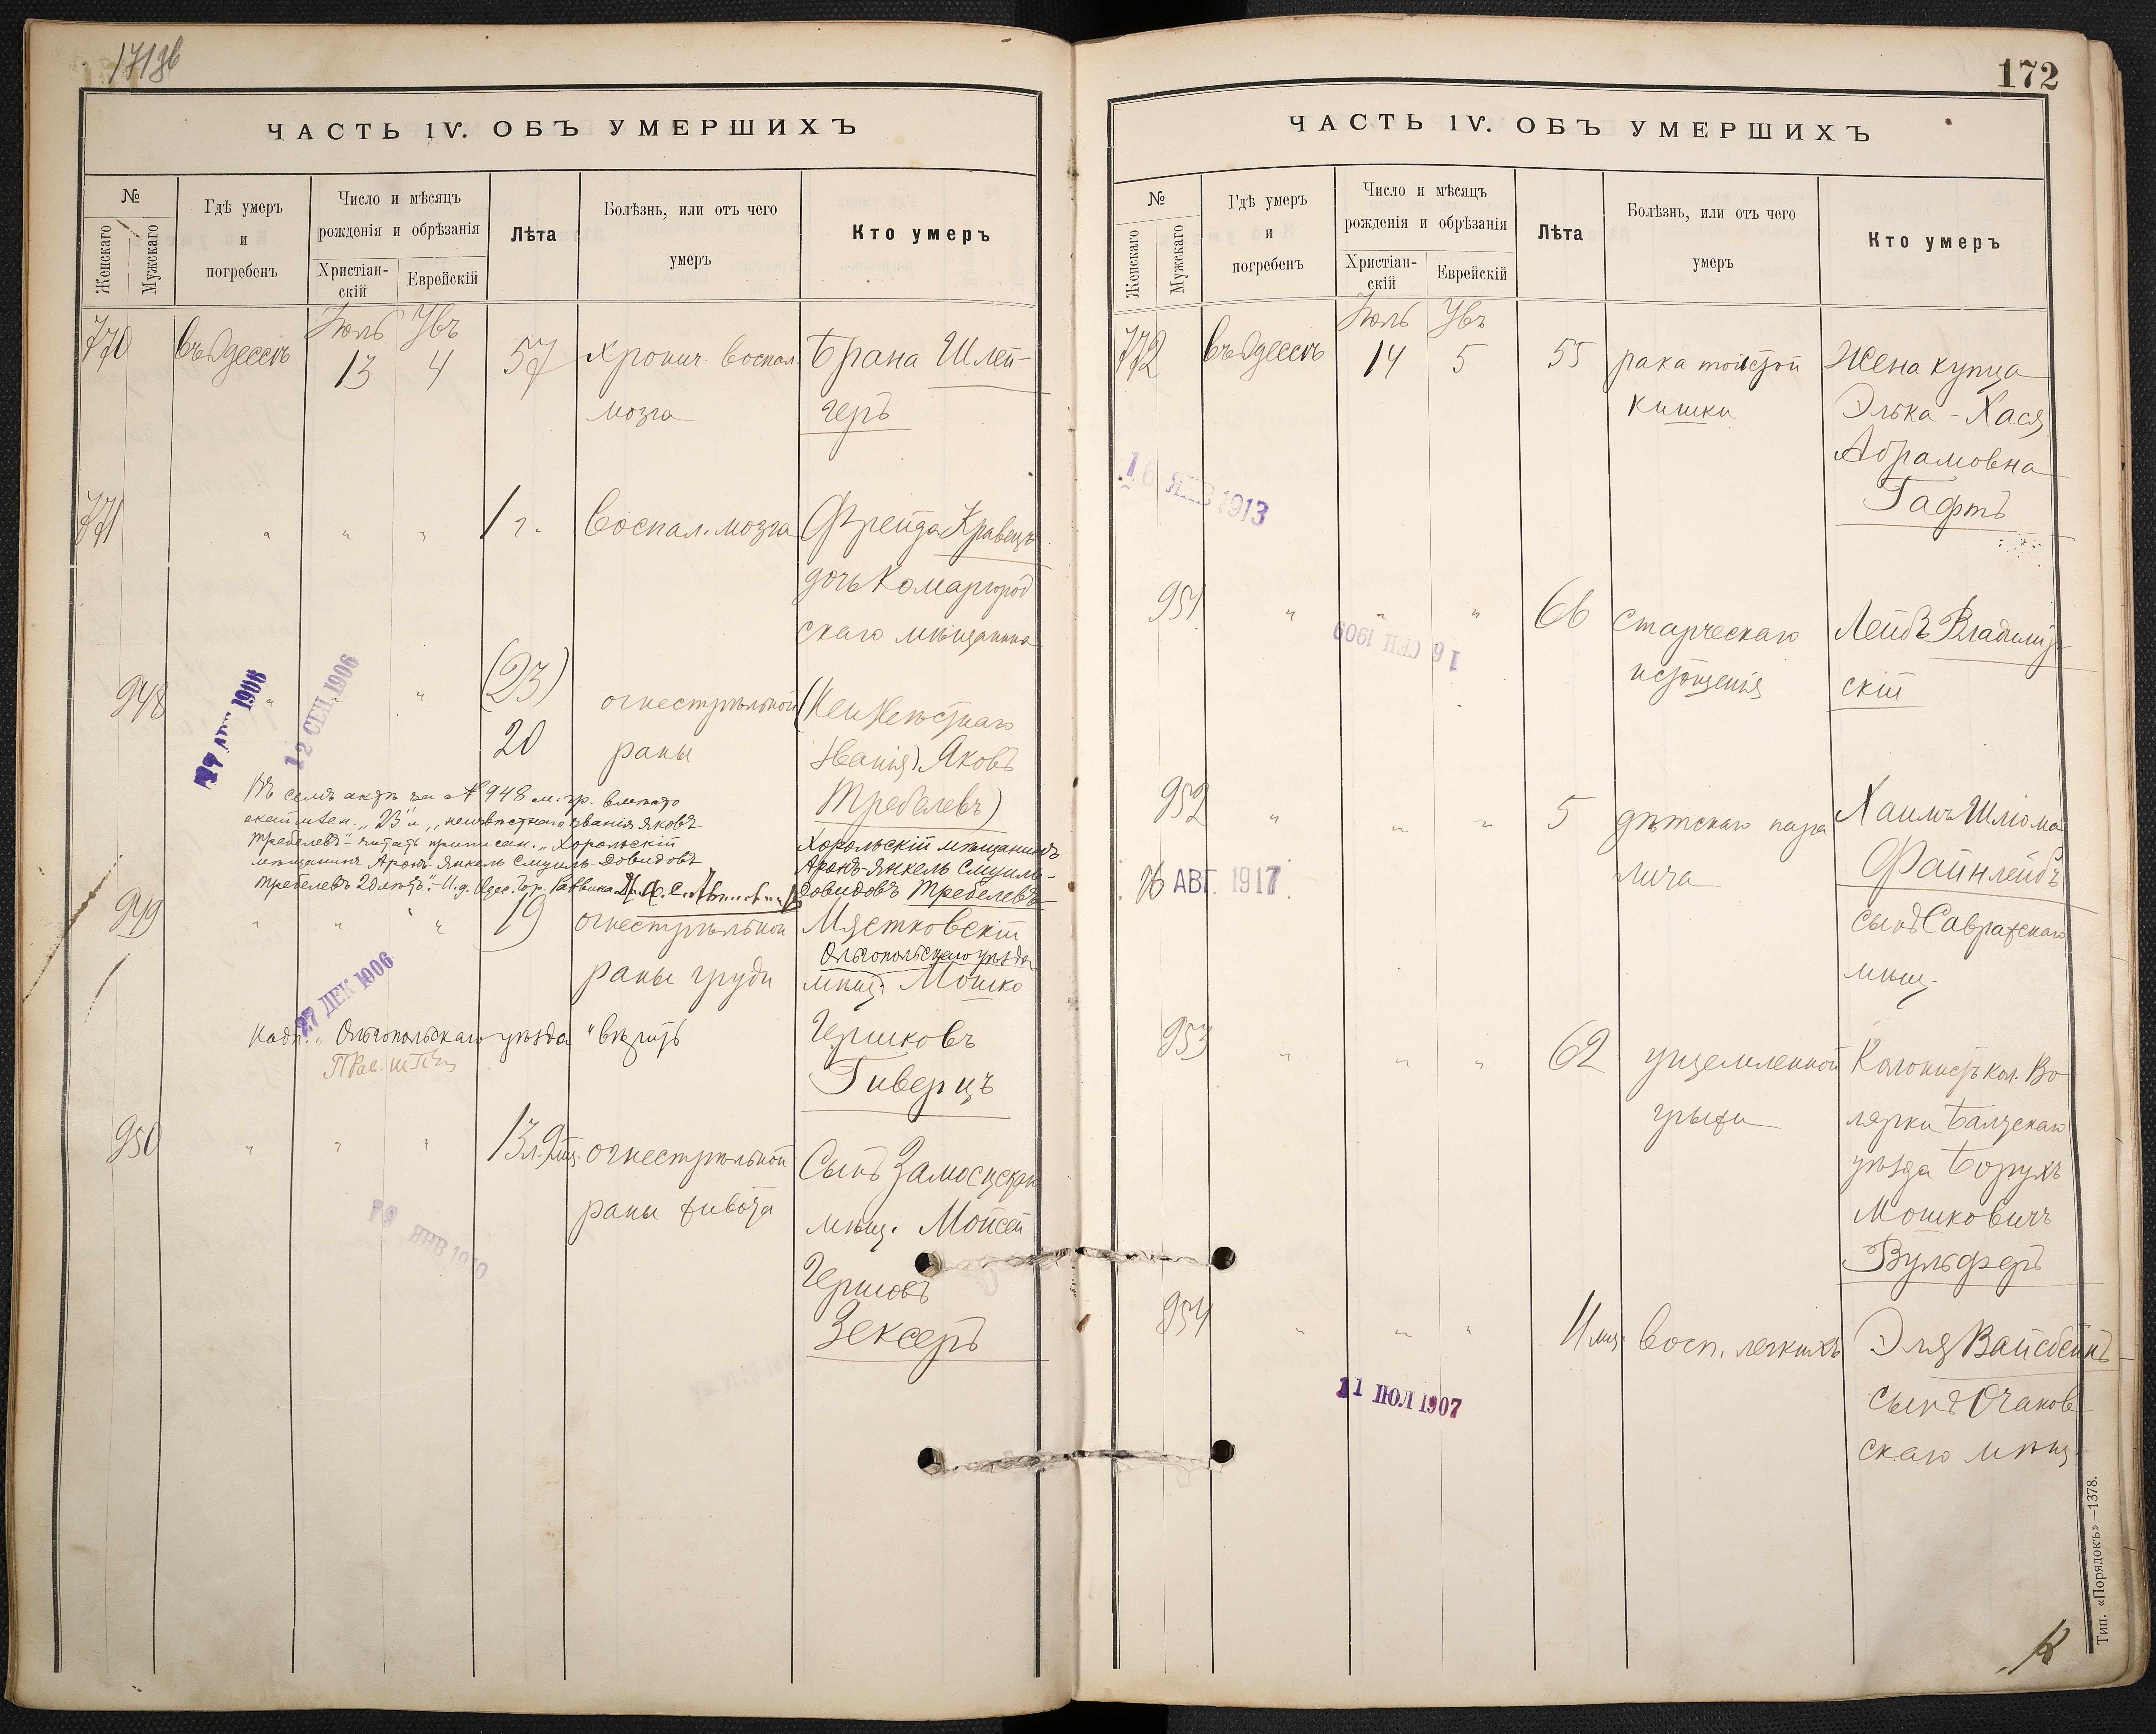 171об
ЧАСТЬ IV. ОБЪ УМЕРШИХЪ
№
Женскаго
Мужскаго
Гдѣ умеръ
и
погребенъ
Число и мѣсяцъ
рожденія и обрѣзанія
Христіан-
скій
Еврейскій
Лѣта
Болѣзнь, или отъ чего
умеръ
Кто умеръ
Іюль
770
въ Одессѣ
13
4
57
Хронич. воспал.
мозга
Брана Шлей-
геръ
771
"
"
"
1 г.
Воспал. мозга
Фрейда Кравецъ
дочь Комаргород
скаго мѣщанина
948
"
"
(23)
20
огнестрѣльной
раны
(Неизвѣстнаго
званія) Яковъ
Требелевъ)
Хорольскій мѣщанинъ
Аронъ-Янкель Смуилъ-
Довидовъ Требелевъ
12 СЕН 1906
Въ семъ актѣ за № 948 м. гр. вмѣсто
"23" и "неизвѣстнаго званія Яковъ
Требелевъ" читать приписан. "Хорольскій
мѣщанинъ Аронъ-Янкель Смуилъ-Довидовъ
Требелевъ 20 лѣтъ".- И. д. Одес. Гор. Раввина
949
"
"
"
19
огнестрѣльной
раны груди
Мястковскій
Ольгопольскаго уѣзда
мѣщ. Мошко
Гершковъ
Гиверцъ
27 ДЕК 1906
Надп. "Ольгопольскаго уѣзда" вѣрить
950
"
"
"
13 л. 9 мѣс.
огнестрѣльной
раны живота
Сынъ Замосцскаго
мѣщ. Мойсей
Гершовъ
Зексеръ
19 ЯНВ 1910
172
ЧАСТЬ IV. ОБЪ УМЕРШИХЪ
№
Женскаго
Мужскаго
Гдѣ умеръ
и
погребенъ
Число и мѣсяцъ
рожденія и обрѣзанія
Христіан-
скій
Еврейскій
Лѣта
Болѣзнь, или отъ чего
умеръ
Кто умеръ
Іюль
772
въ Одессѣ
14
5
55
рака толстой
кишки
Жена купца
Элька-Хася
Абрамовна
Гафтъ
16 ЯНВ 1913
951
"
"
"
66
старческаго
истощенія
Лейбъ Владимір-
скій
16 СЕН 1909
952
"
"
"
5
дѣтскаго пара
лича
Хаимъ Шліома
Файнлейбъ
сынъ Савранскаго
мѣщ.
26 АВГ. 1917
953
"
"
"
62
ущемленной
грыжи
Колонистъ кол. Во
лярки Балтскаго
уѣзда Борухъ
Мошковичъ
Вульферъ
954
"
"
"
11 мѣс.
восп. легкихъ
Эля Вайсбейнъ-
сынъ Очаков-
скаго мѣщ.
11 ІЮЛ 1907
Тип. «Порядокъ»—1378.